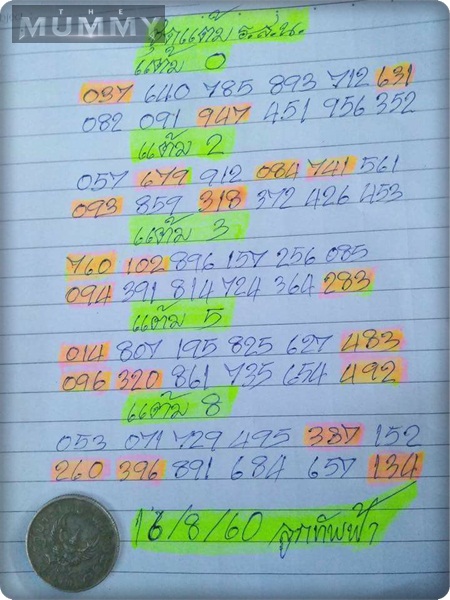 THE
MUMMY
แต้ม ธ.ส.น.
แต้ม 0
037 640 785 893 712 631
082 091 947 451 956 352
แต้ม 2
057 679 912 084 741 561
093 859 318 372 426 453
แต้ม 3
760 102 896 157 256 085
094 391 814 724 364 283
แต้ม 5
014 807 195 825 627 483
096 320 861 735 654 492
แต้ม 8
053 071 729 495 387 152
260 396 891 684 657 134
16/8/60 ลูกทัพฟ้า